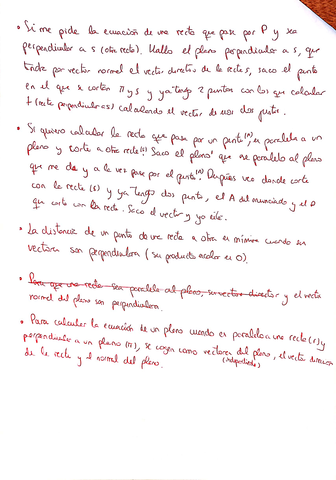 • Si me pide la ecuación de una recta que pase por P y sea
perpendicular a s (otra recta). Hallo el plano perpendicular a s, que
tendrá por vector normal el vector director de la recta s, saco el punto
en el que se cortan π y s y ya tengo 2 puntos con los que calcular
r (recta perpendicular a s) calculando el vector de esos dos puntos.
• Si quiero calcular la recta que pasa por un punto (A), es paralela a un
plano y corta a otra recta (s) Saco el plano que sea paralelo al plano
que me dan y a la vez pase por el punto (A). Después veo donde corta
con la recta (s) y ya tengo dos punto, el A del enunciado y el P
que corta con la recta. Saco el vector y ya
• La distancia de un punto de una recta a otra es mínima cuando su
vectores son perpendiculares (su producto escalar es 0).
• Para que una recta sea paralela al plano, su vector director y el vector
normal del plano son perpendiculares.
• Para calcular la ecuación de un plano cuando es paralelo a una recta (r) y
perpendicular a un plano (π), se cogen como vectores del plano, el vector director
de la recta y el normal del plano.